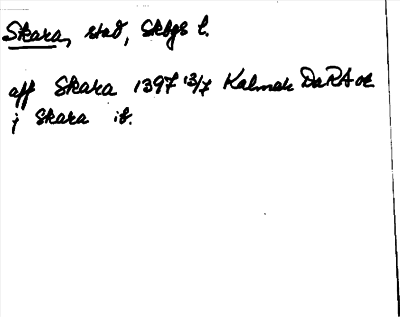 Skara, stad, Skbgs l.
aff Skara 1397 13/7 Kalmar DaRA or
j Skara ib.